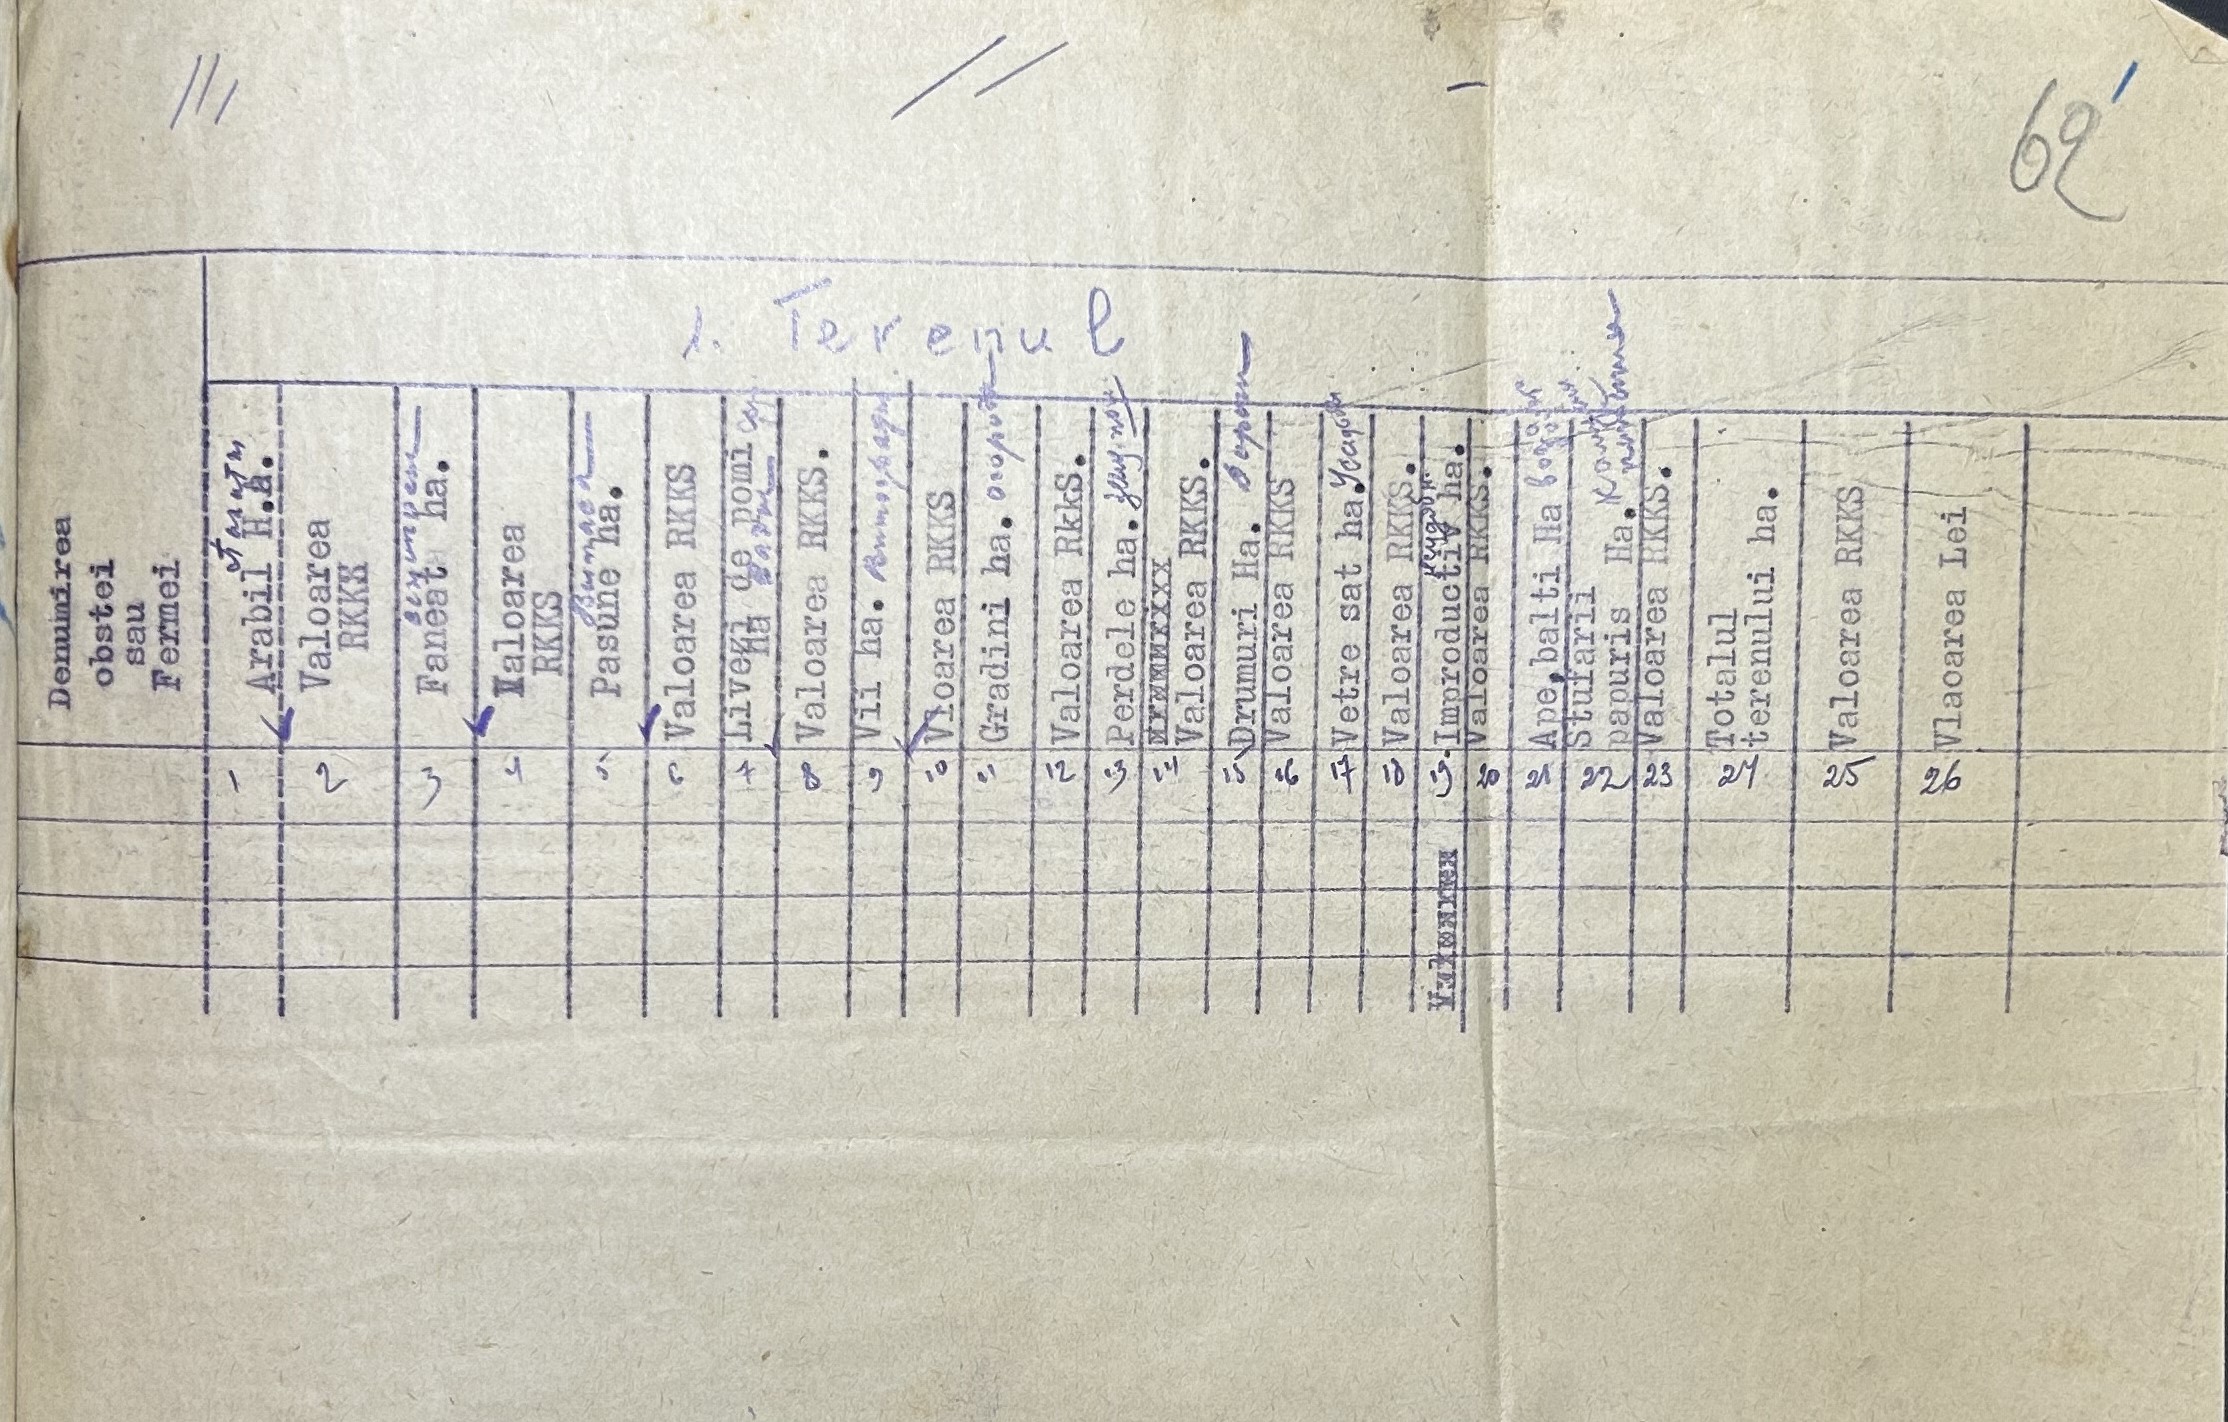 62
1. Terenul
Denumirea
obstei
sau
Fermei
Arabil H.a.
Valoarea
RKKX
Faneat ha.
Valoarea
RKKS
Pasune ha.
Valoarea RKKS
Liveki de pomi
Ha
Valoarea RKKS.
Vii ha.
Vloarea RKKS
Gradini ha.
Valoarea RkkS.
Perdele ha.
Valoarea RKKS.
Drumuri Ha.
Valoarea RKKS
Vetre sat ha.
Valoarea RKKS.
Improductiv ha.
Valoarea RKKS.
Ape,balti Ha
Stufarii
papuris Ha.
Valoarea RKKS.
Totalul
terenului ha.
Valoarea RKKS
Vlaoarea Lei
1 2 3 4 5 6 7 8 9 10 11 12 13 14 15 16 17 18 19 20 21 22 23 24 25 26